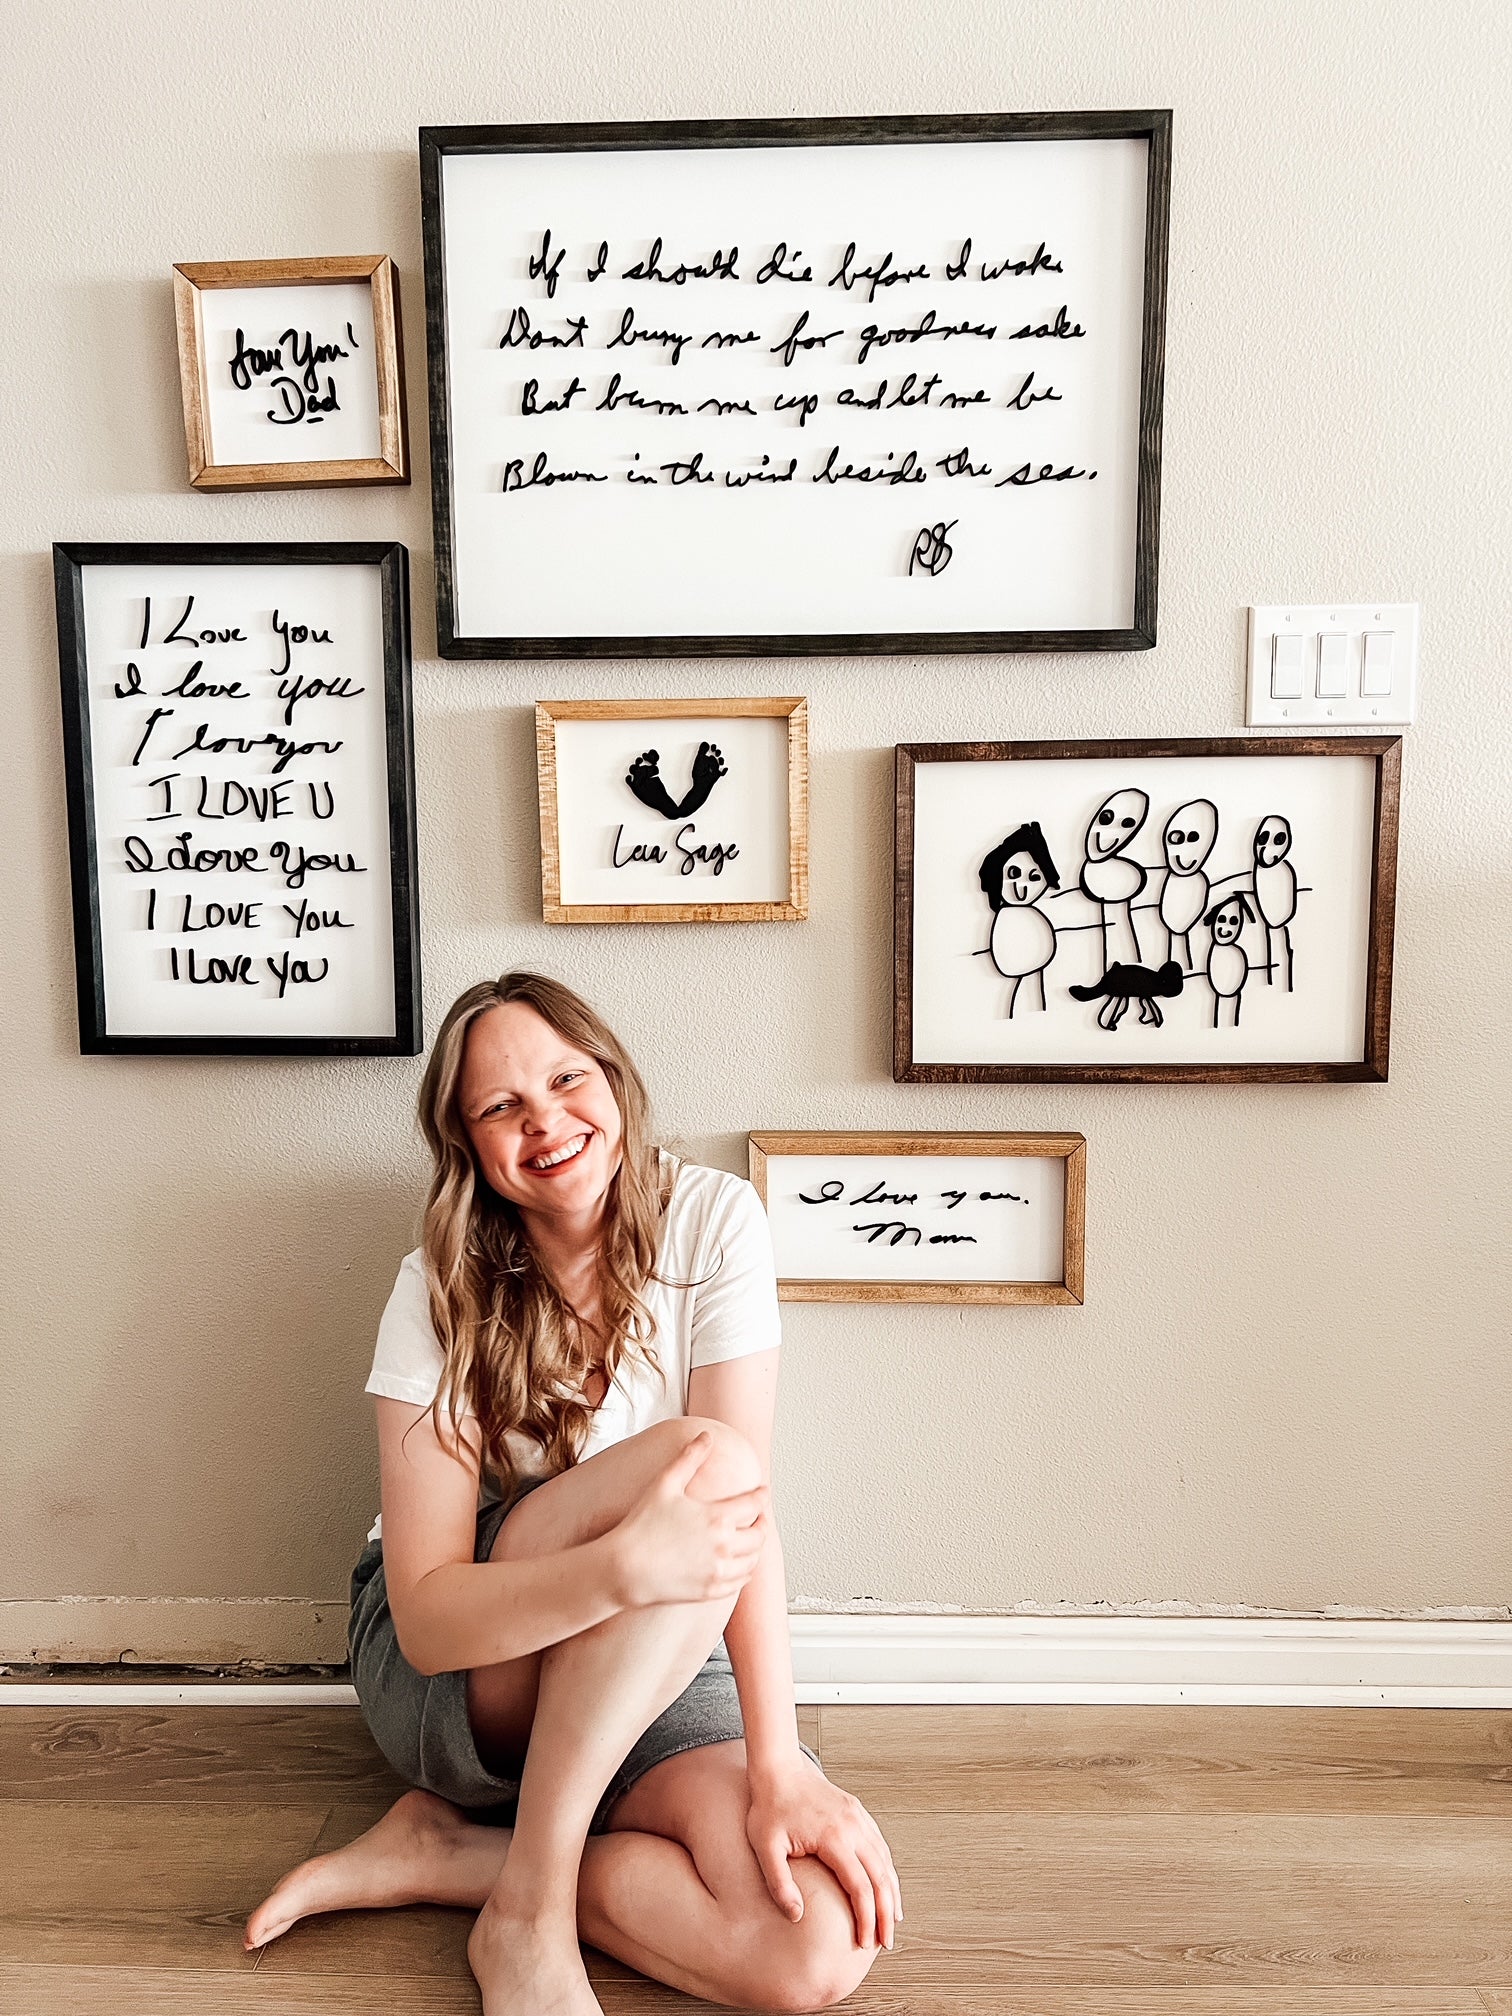 If I should die before I wake
Dont bury me for goodness sake
But burn me up and let me be
Blown in the wind beside the sea.
RS
Love You!
Dad
I Love You
I love you
I love you
I LOVE U
I Love You
I LOVE You
I Love You
Leia Sage
I love you.
Mom